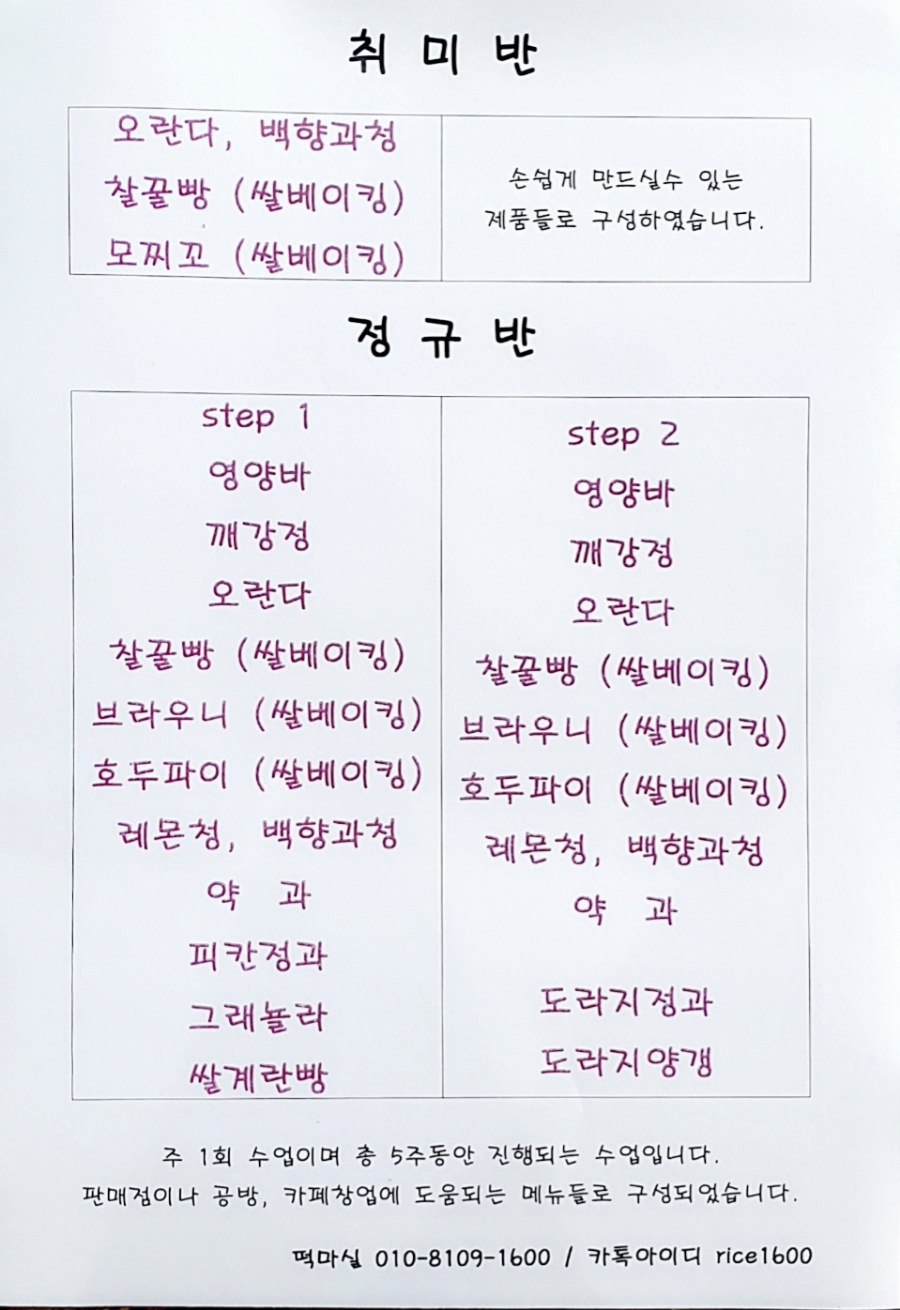 취 미 반
오란다, 백향과청
찰꿀빵 (쌀베이킹)
모찌꼬 (쌀베이킹)
손쉽게 만드실수 있는
제품들로 구성하였습니다.
정 규 반
step 1
영양바
깨강정
오란다
찰꿀빵 (쌀베이킹)
브라우니 (쌀베이킹)
호두파이 (쌀베이킹)
레몬청, 백향과청
약 과
피칸정과
그래놀라
쌀계란빵
step 2
영양바
깨강정
오란다
찰꿀빵 (쌀베이킹)
브라우니 (쌀베이킹)
호두파이 (쌀베이킹)
레몬청, 백향과청
약 과
도라지정과
도라지양갱
주 1회 수업이며 총 5주동안 진행되는 수업입니다.
판매점이나 공방, 카페창업에 도움되는 메뉴들로 구성되었습니다.
떡마실 010-8109-1600 / 카톡아이디 rice1600